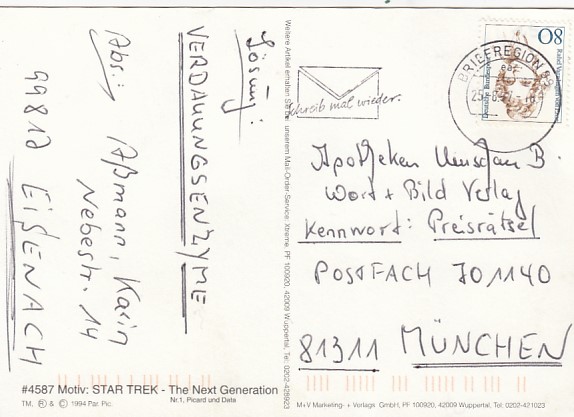 Abs.: Aßmann, Karin
Nebestr. 14
99817 EISENACH
Lösung:
VERDAUUNGSENZYME
#4587 Motiv: STAR TREK - The Next Generation
Nr.1, Picard und Data
TM, ® & © 1994 Par. Pic.
Weitere Artikel erhalten Sie bei unserem Mail-Order-Service: Xtreme, PF 100920, 42009 Wuppertal, Tel.: 0202-428923
M+V Marketing- + Verlags GmbH, PF 100920, 42009 Wuppertal, Tel.: 0202-421023
Schreib mal wieder.
BRIEFREGION 99
Deutsche Bundespost
80
Apotheken Umschau B.
Wort + Bild Verlag
Kennwort: Preisrätsel
POSTFACH 701140
81311 MÜNCHEN